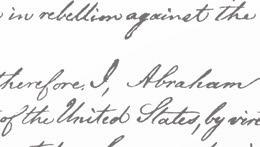 in rebellion against the
therefore, I, Abraham
of the United States, by